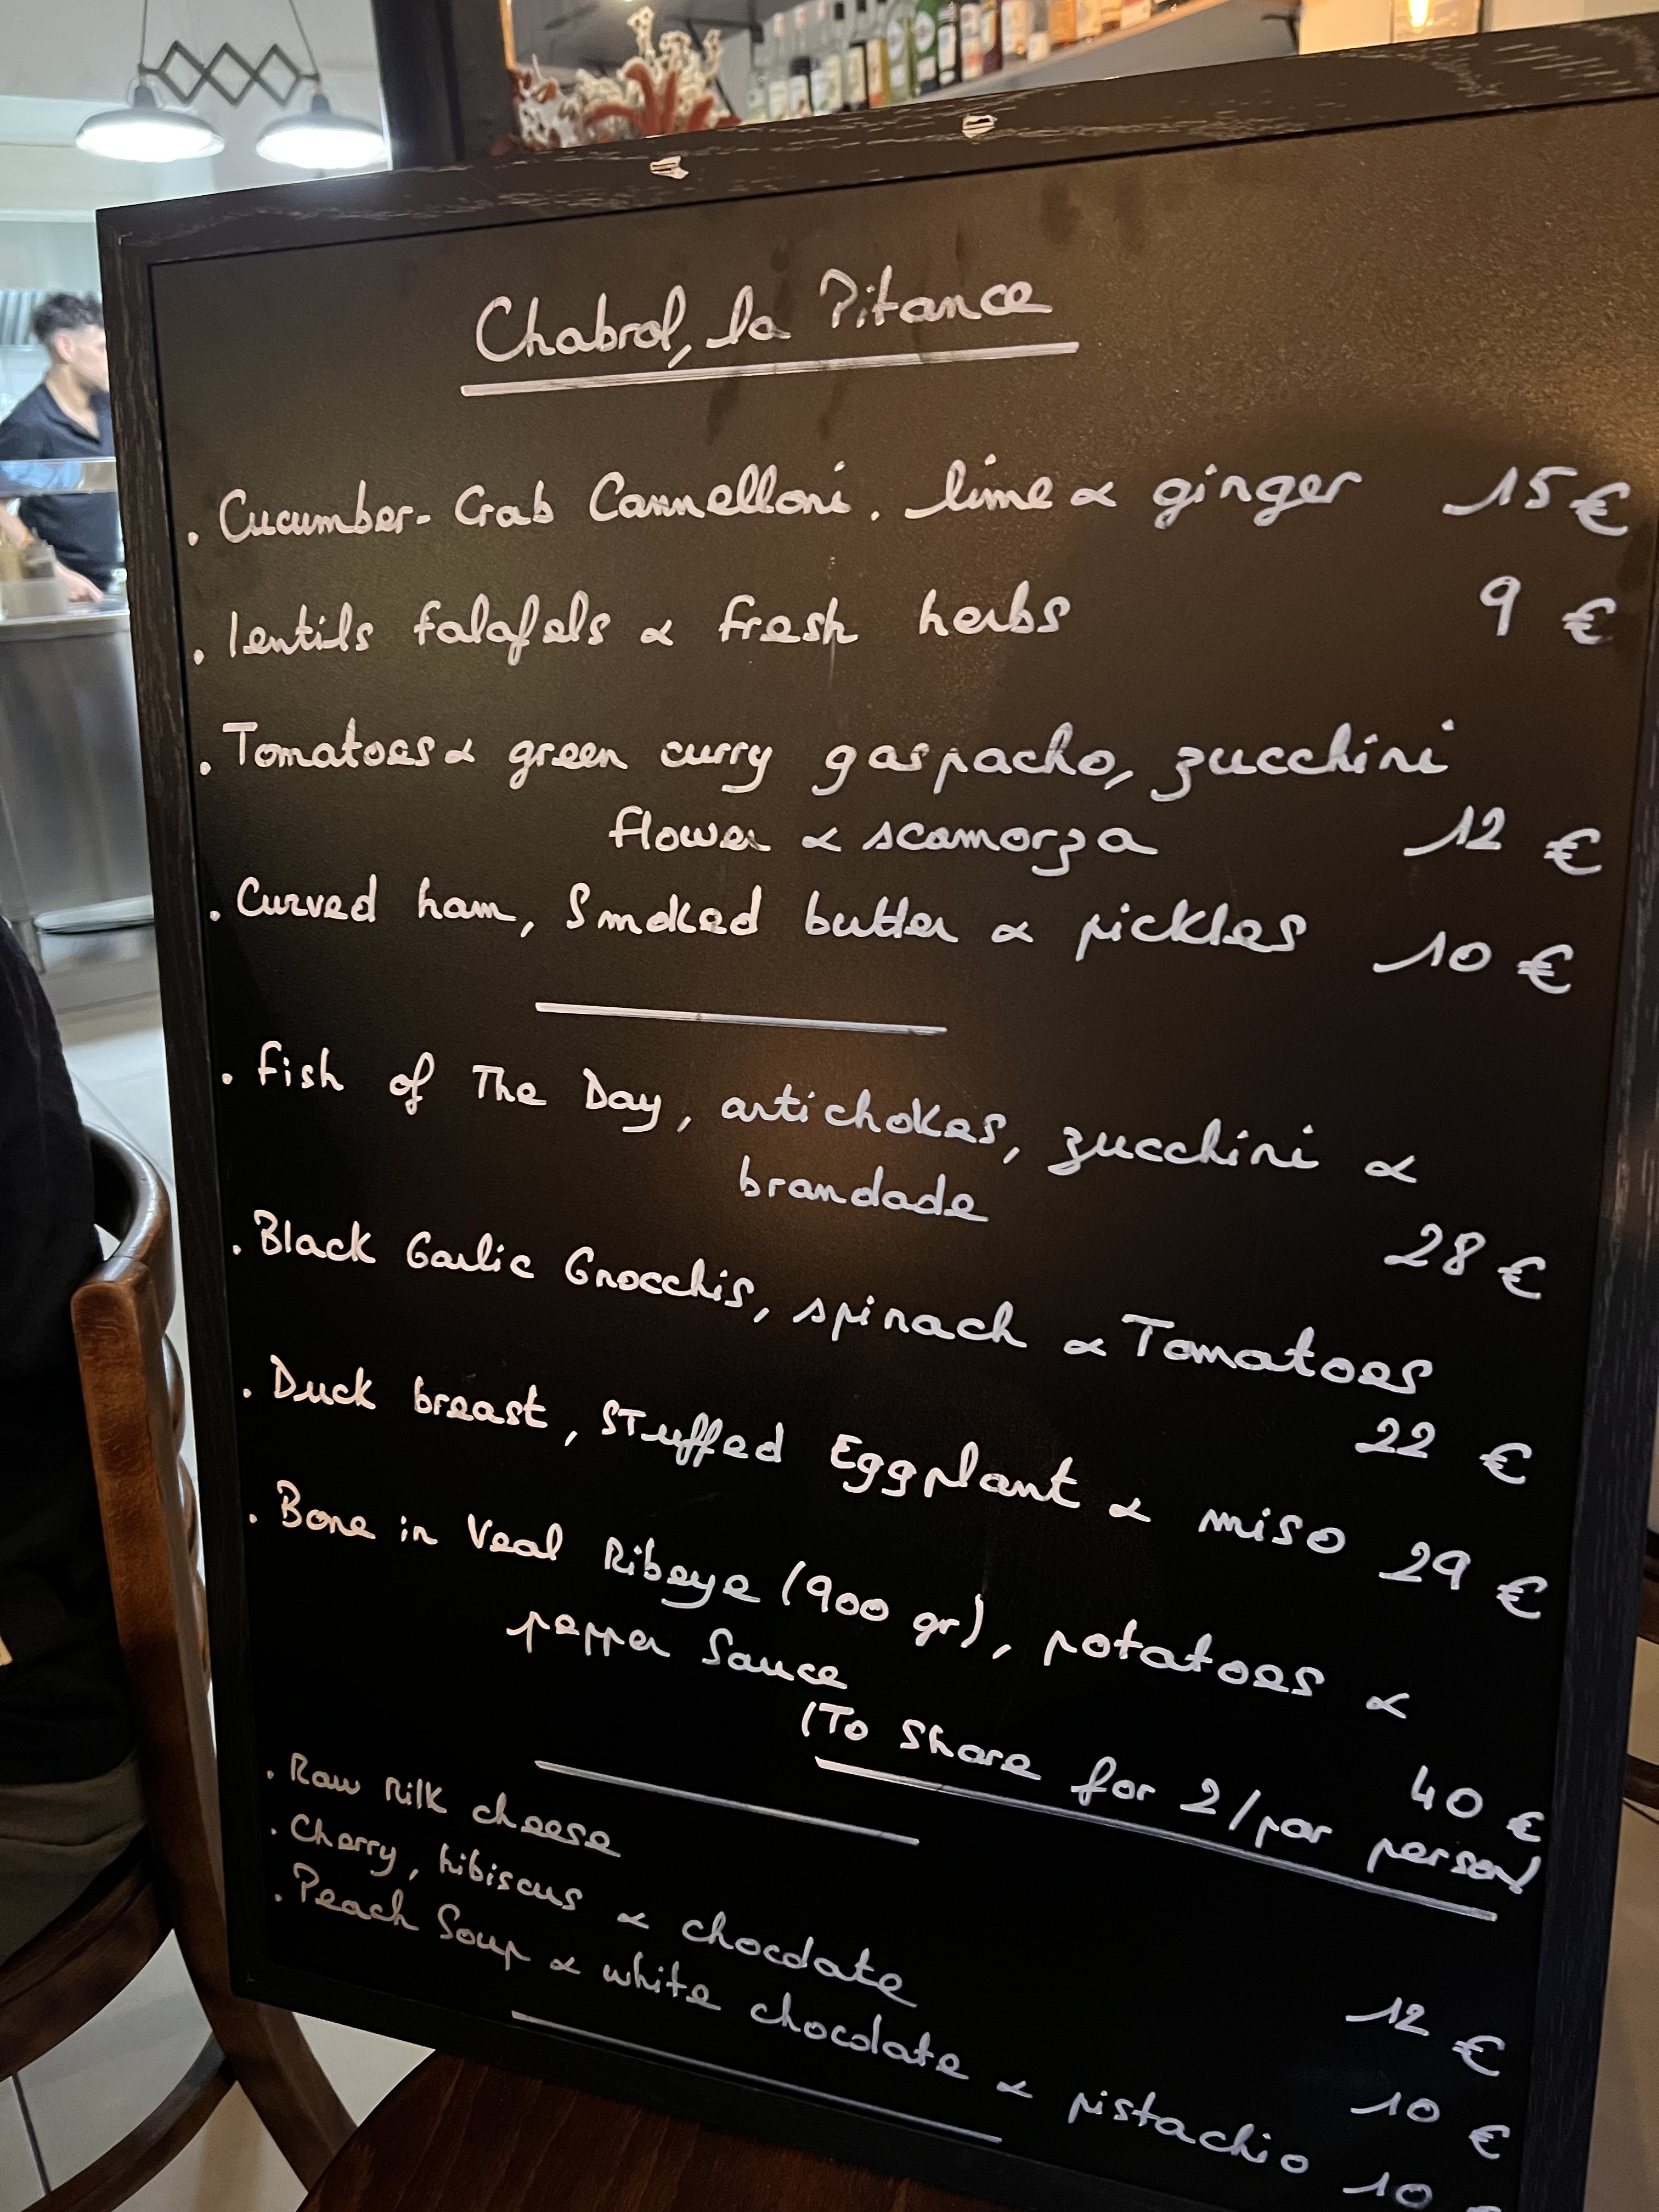 Chabrol, la Pitance
. Cucumber-Crab Cannelloni, lime & ginger 15 €
. lentils falafels & fresh herbs 9 €
. Tomatoes & green curry gaspacho, zucchini
flower & scamorza 12 €
. Curved ham, Smoked butter & pickles 10 €
. Fish of The Day, artichokes, zucchini &
brandade 28 €
. Black Garlic Gnocchis, spinach & Tomatoes
22 €
. Duck breast, Stuffed Eggplant & miso 29 €
. Bone in Veal Ribeye (900 gr), potatoes &
pepper Sauce 40 €
(To Share for 2/par person)
. Raw Milk cheese 12 €
. Cherry, hibiscus & chocolate 10 €
. Peach Soup & white chocolate & pistachio 10 €